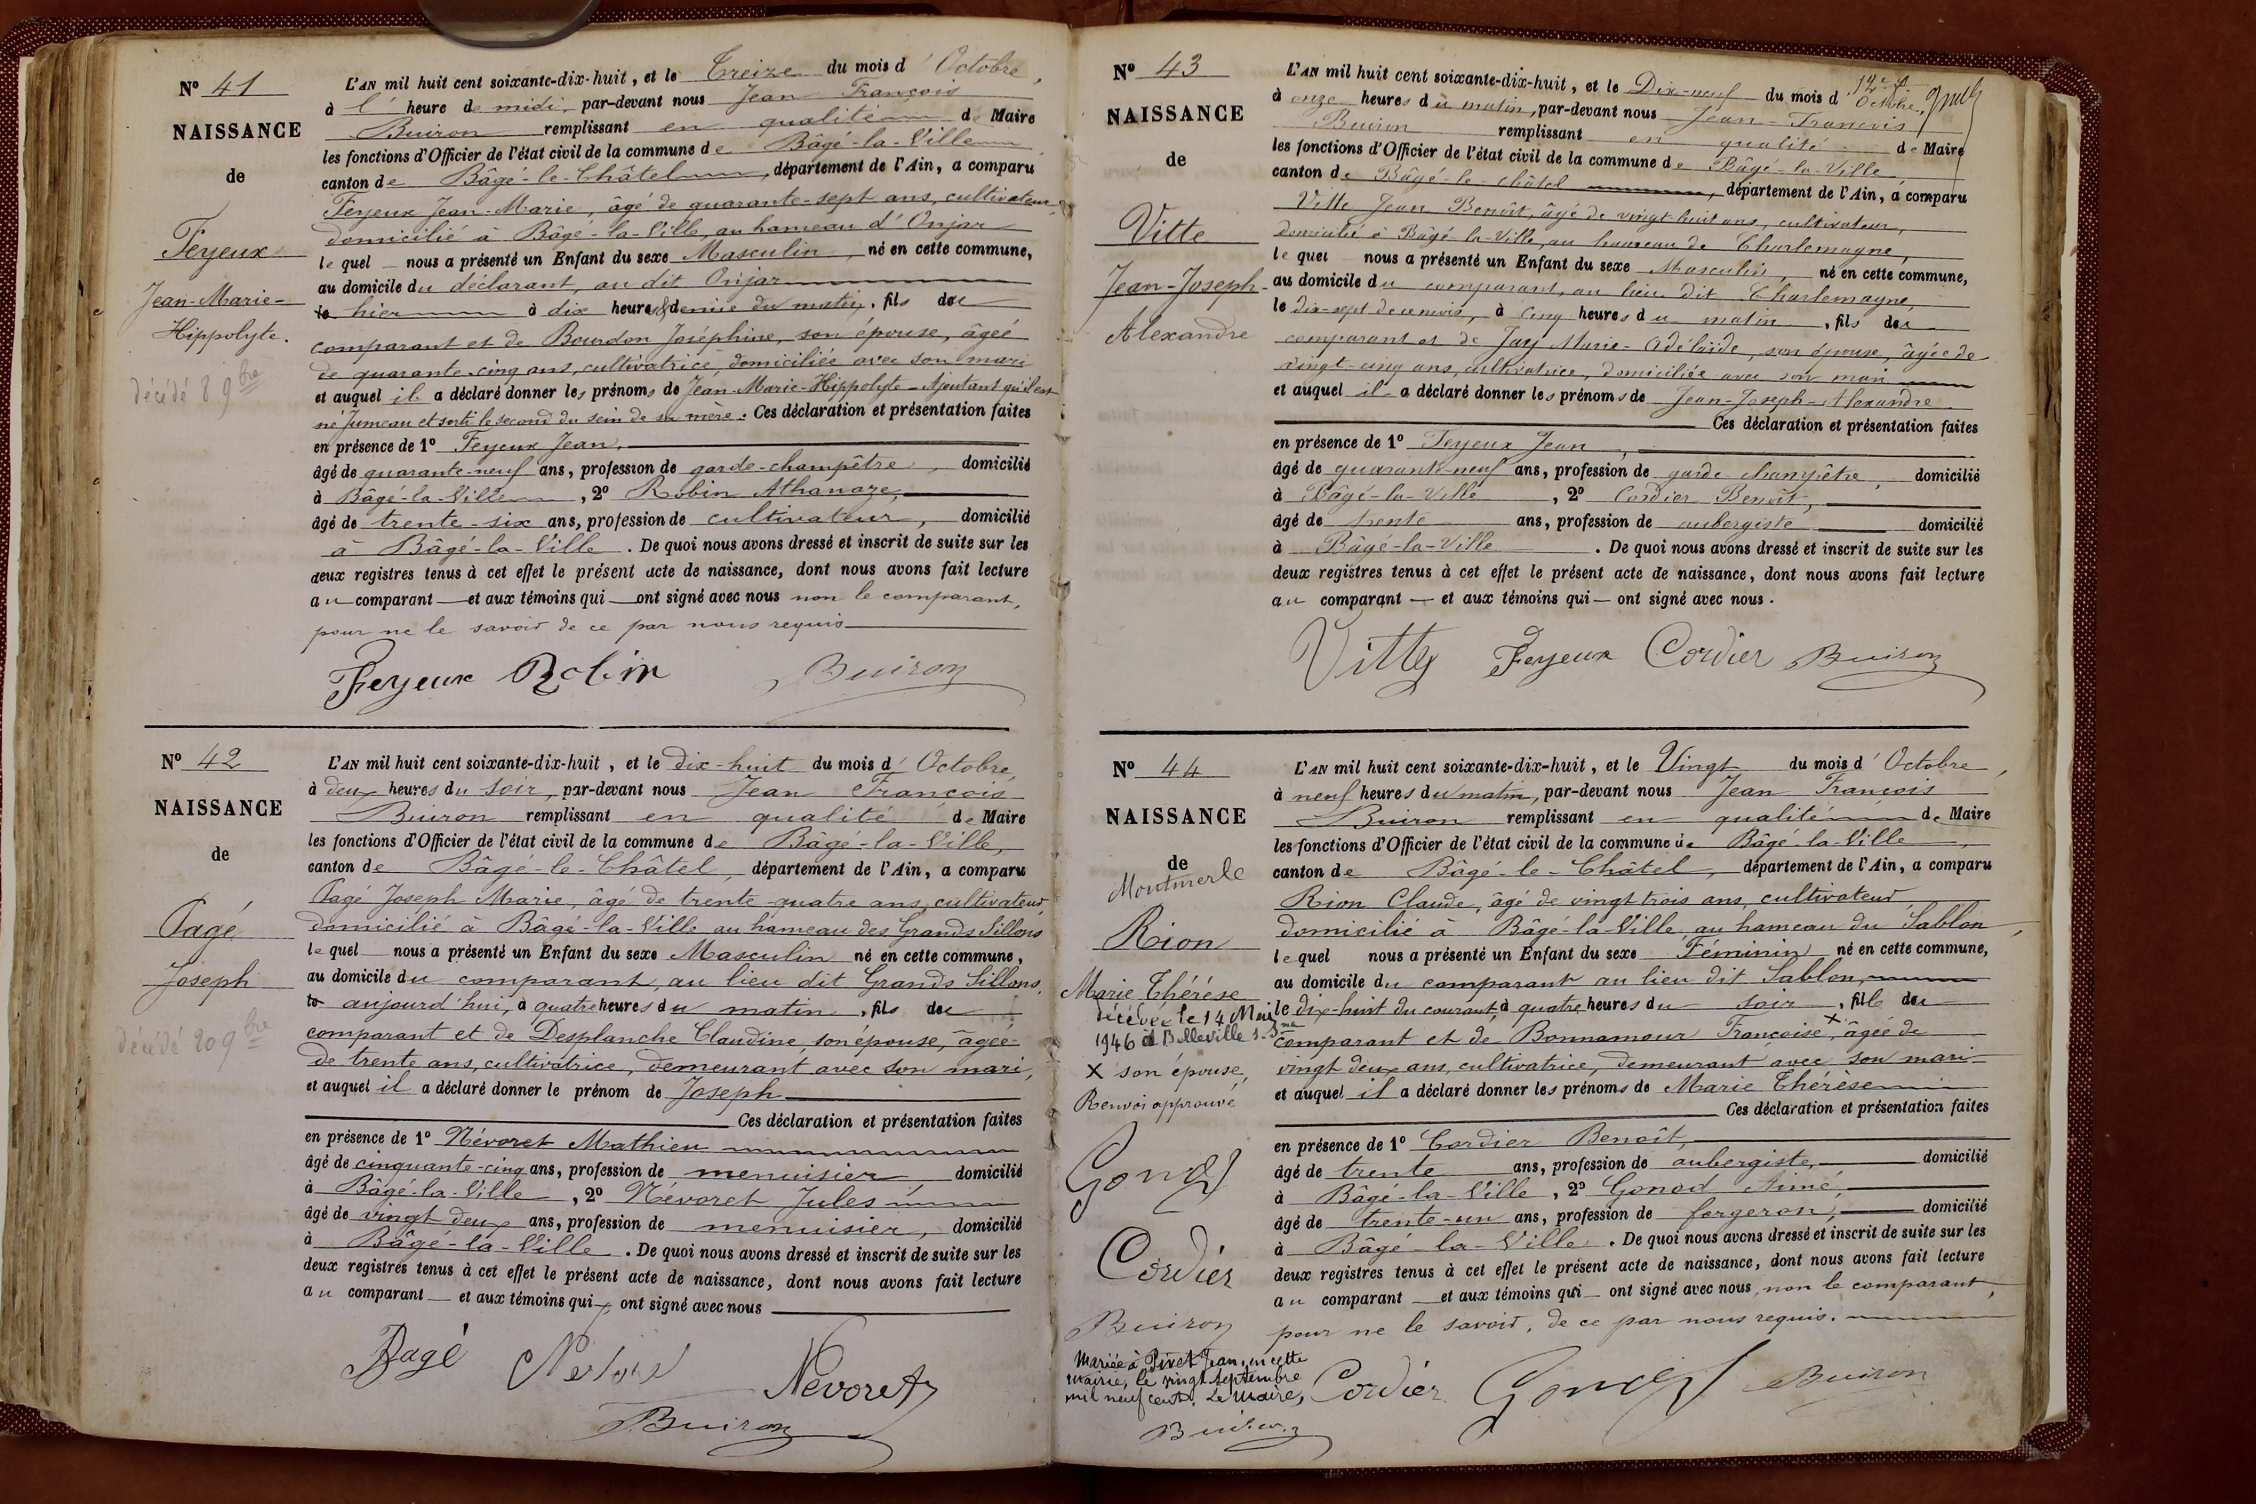 Nº 41
NAISSANCE
de
Feyeux
Jean-Marie-
Hippolyte.
décédé 8 9bre
L'AN mil huit cent soixante-dix-huit, et le Treize du mois d'Octobre,
à l' heure de midi, par-devant nous Jean François
Buiron remplissant en qualité de Maire
les fonctions d'Officier de l'état civil de la commune de Bâgé-la-Ville
canton de Bâgé-le-Châtel, département de l'Ain, a comparu
Feyeux Jean-Marie, âgé de quarante-sept ans, cultivateur,
domicilié à Bâgé-la-Ville, au hameau d'Onjar
lequel nous a présenté un Enfant du sexe Masculin, né en cette commune,
au domicile du déclarant, au dit Onjar
le hier à dix heures & demie du matin, fils du
comparant et de Bourdon Joséphine, son épouse, âgée
de quarante-cinq ans, cultivatrice, domiciliée avec son mari
et auquel il a déclaré donner les prénoms de Jean-Marie-Hippolyte - Ajoutant qu'il est
né Jumeau et sorti le second du sein de sa mère. Ces déclaration et présentation faites
en présence de 1º Feyeux Jean,
âgé de quarante-neuf ans, profession de garde-champêtre, domicilié
à Bâgé-la-Ville, 2º Robin Athanaze,
âgé de trente-six ans, profession de cultivateur, domicilié
à Bâgé-la-Ville. De quoi nous avons dressé et inscrit de suite sur les
deux registres tenus à cet effet le présent acte de naissance, dont nous avons fait lecture
au comparant et aux témoins qui ont signé avec nous non le comparant,
pour ne le savoir de ce par nous requis
Feyeux Robin Buiron
Nº 42
NAISSANCE
de
Pagé
Joseph
décédé 20 9bre
L'AN mil huit cent soixante-dix-huit, et le dix-huit du mois d'Octobre,
à deux heures du soir, par-devant nous Jean François
Buiron remplissant en qualité de Maire
les fonctions d'Officier de l'état civil de la commune de Bâgé-la-Ville,
canton de Bâgé-le-Châtel, département de l'Ain, a comparu
Pagé Joseph Marie, âgé de trente-quatre ans, cultivateur,
domicilié à Bâgé-la-Ville au hameau des Grands Sillons
lequel nous a présenté un Enfant du sexe Masculin né en cette commune,
au domicile du comparant, au lieu dit Grands Sillons,
le aujourd'hui, à quatre heures du matin, fils du
comparant et de Desplanche Claudine, son épouse, âgée
de trente ans, cultivatrice, demeurant avec son mari,
et auquel il a déclaré donner le prénom de Joseph
Ces déclaration et présentation faites
en présence de 1º Névoret Mathieu
âgé de cinquante-cinq ans, profession de menuisier, domicilié
à Bâgé-la-Ville, 2º Névoret Jules
âgé de vingt deux ans, profession de menuisier, domicilié
à Bâgé-la-Ville. De quoi nous avons dressé et inscrit de suite sur les
deux registres tenus à cet effet le présent acte de naissance, dont nous avons fait lecture
au comparant et aux témoins qui ont signé avec nous
Pagé Névoret Nevoret
Buiron
Nº 43
NAISSANCE
de
Vitte
Jean-Joseph-
Alexandre
L'AN mil huit cent soixante-dix-huit, et le Dix-neuf du mois d'Octobre,
à onze heures du matin, par-devant nous Jean-François
Buiron remplissant en qualité de Maire
les fonctions d'Officier de l'état civil de la commune de Bâgé-la-Ville,
canton de Bâgé-le-Châtel, département de l'Ain, a comparu
Vitte Jean Benoît, âgé de vingt-huit ans, cultivateur,
domicilié à Bâgé-la-Ville, au hameau de Charlemagne,
lequel nous a présenté un Enfant du sexe Masculin, né en cette commune,
au domicile du comparant, au lieu dit Charlemagne,
le dix-sept de ce mois, à cinq heures du matin, fils du
comparant et de Jury Marie-Adélaïde, son épouse, âgée de
vingt-cinq ans, cultivatrice, domiciliée avec son mari
et auquel il a déclaré donner les prénoms de Jean-Joseph-Alexandre
Ces déclaration et présentation faites
en présence de 1º Feyeux Jean,
âgé de quarante-neuf ans, profession de garde champêtre, domicilié
à Bâgé-la-Ville, 2º Cordier Benoît,
âgé de trente ans, profession de aubergiste domicilié
à Bâgé-la-Ville. De quoi nous avons dressé et inscrit de suite sur les
deux registres tenus à cet effet le présent acte de naissance, dont nous avons fait lecture
au comparant et aux témoins qui ont signé avec nous.
Vitte Feyeux Cordier Buiron
Nº 44
NAISSANCE
de
Montmerle
Rion
Marie Thérèse
décédée le 14 Mai
1946 à Belleville s-Sne
X son épouse,
Renvoi approuvé
Gonod
Cordier
Buiron
Mariée à Pivet Jean, en cette
mairie, le vingt septembre
mil neuf cent. Le Maire,
Buiron
L'AN mil huit cent soixante-dix-huit, et le Vingt du mois d'Octobre,
à neuf heures du matin, par-devant nous Jean François
Buiron remplissant en qualité de Maire
les fonctions d'Officier de l'état civil de la commune de Bâgé-la-Ville,
canton de Bâgé-le-Châtel, département de l'Ain, a comparu
Rion Claude, âgé de vingt trois ans, cultivateur
domicilié à Bâgé-la-Ville, au hameau du Sablon,
lequel nous a présenté un Enfant du sexe Féminin né en cette commune,
au domicile du comparant au lieu dit Sablon,
le dix-huit du courant, à quatre heures du soir, fille du
comparant et de Bonnamour Françoise X, âgée de
vingt deux ans, cultivatrice, demeurant avec son mari
et auquel il a déclaré donner les prénoms de Marie Thérèse
Ces déclaration et présentation faites
en présence de 1º Cordier Benoît,
âgé de trente ans, profession de aubergiste, domicilié
à Bâgé-la-Ville, 2º Gonod Aimé,
âgé de trente-un ans, profession de forgeron, domicilié
à Bâgé-la-Ville. De quoi nous avons dressé et inscrit de suite sur les
deux registres tenus à cet effet le présent acte de naissance, dont nous avons fait lecture
au comparant et aux témoins qui ont signé avec nous, non le comparant,
pour ne le savoir, de ce par nous requis.
Cordier Gonod Buiron